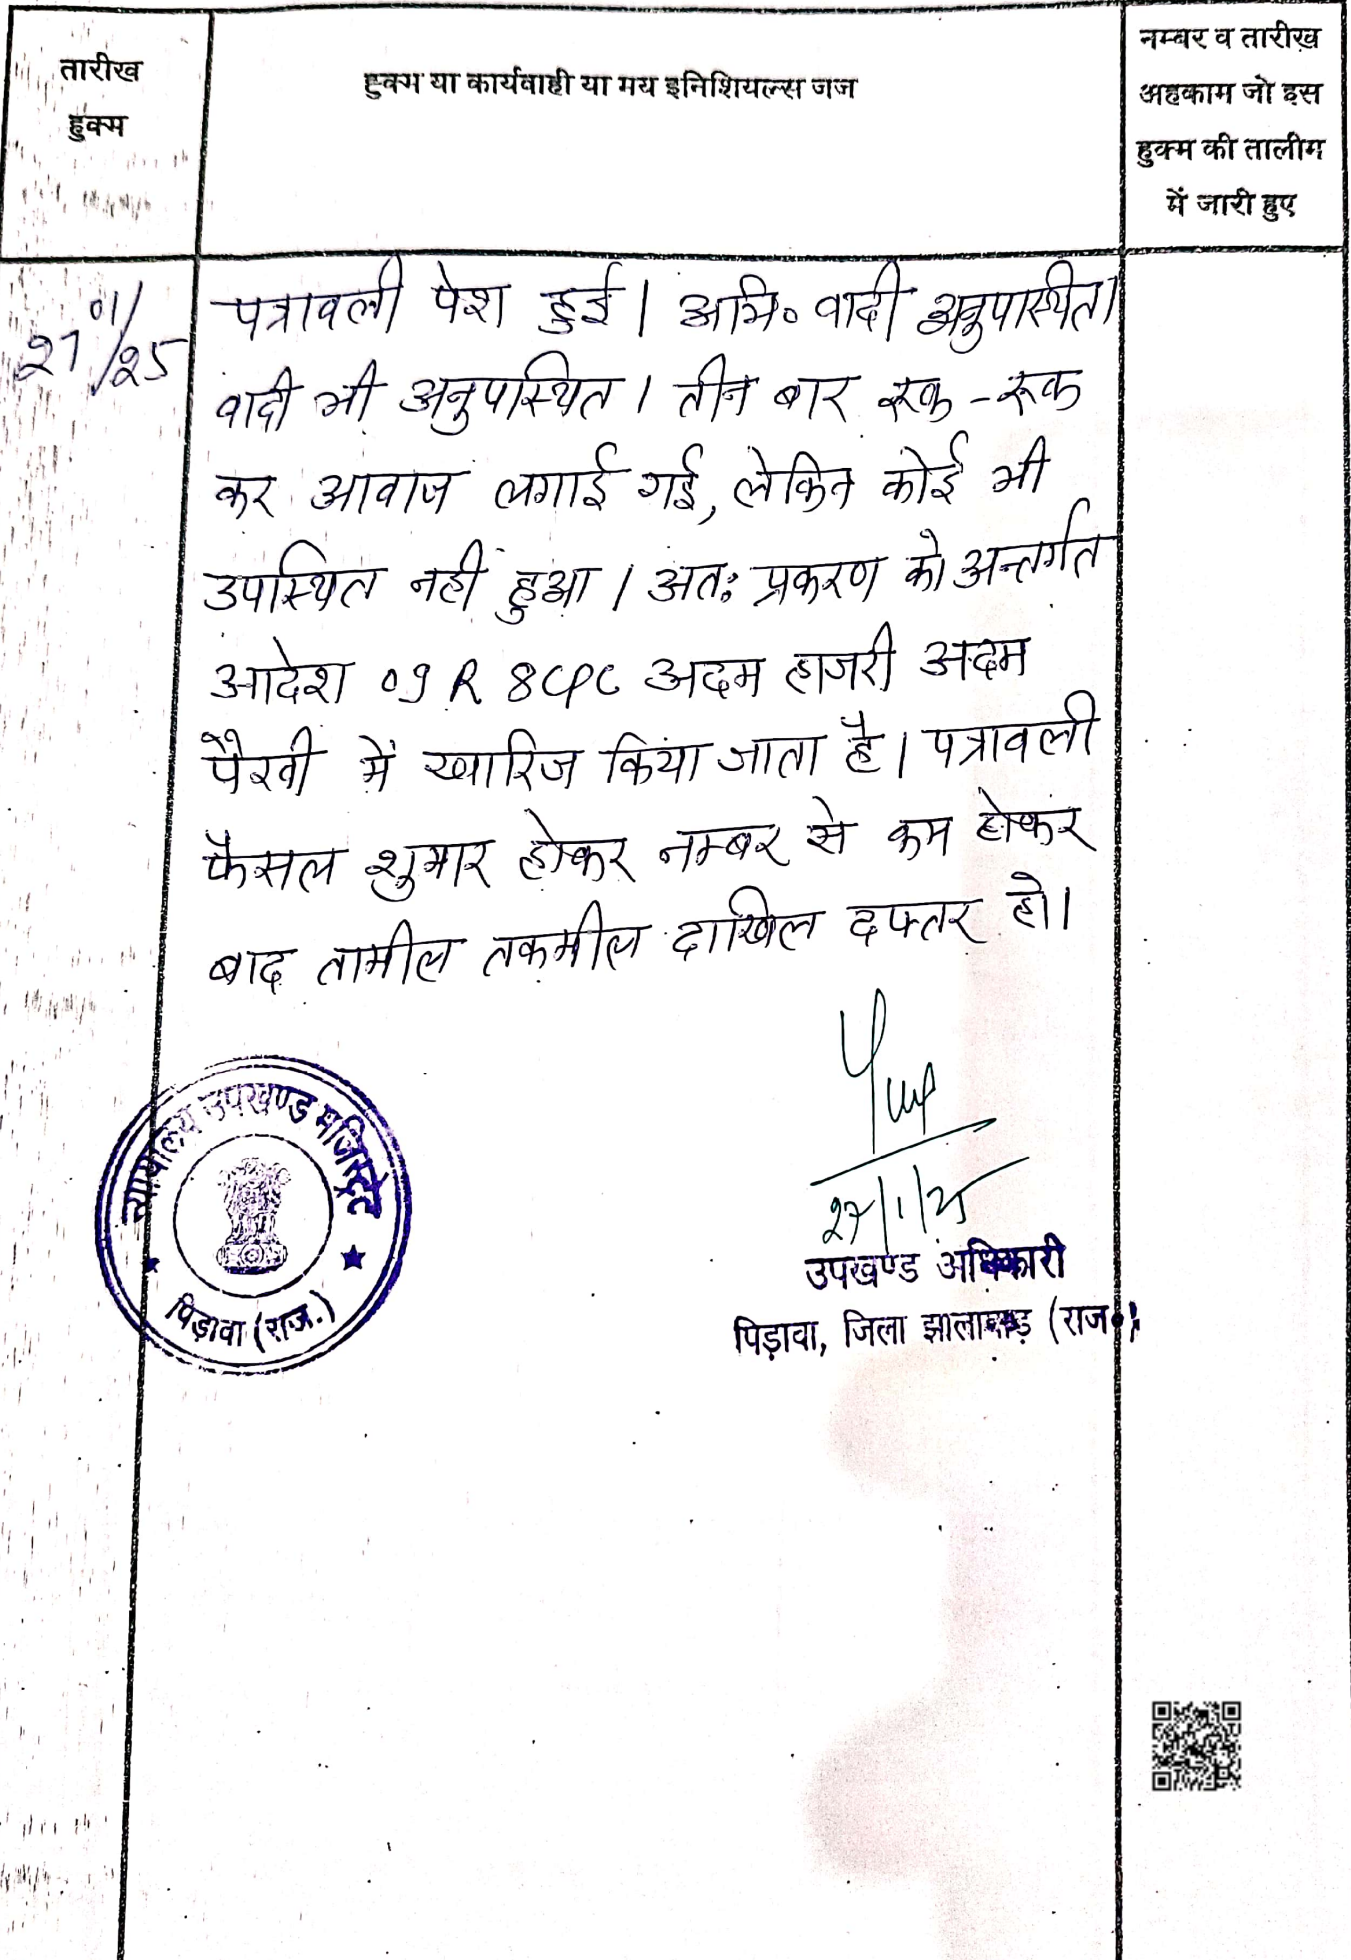 तारीख
हुक्म
हुक्म या कार्यवाही या मय इनिशियल्स जज
नम्बर व तारीख
अहकाम जो इस
हुक्म की तालीम
में जारी हुए
27/01/25
पत्रावली पेश हुई। अभि॰ वादी अनुपस्थित।
वादी भी अनुपस्थित। तीन बार रूक-रूक
कर आवाज लगाई गई, लेकिन कोई भी
उपस्थित नहीं हुआ। अतः प्रकरण को अन्तर्गत
आदेश 09 R 8 CPC अदम हाजरी अदम
पैरवी में खारिज किया जाता है। पत्रावली
फैसल शुमार होकर नम्बर से कम होकर
बाद तामील तकमील दाखिल दफ्तर हो।
27/1/25
उपखण्ड अधिकारी
पिड़ावा, जिला झालावाड़ (राज॰)
न्यायालय उपखण्ड मजिस्ट्रेट
पिड़ावा (राज.)